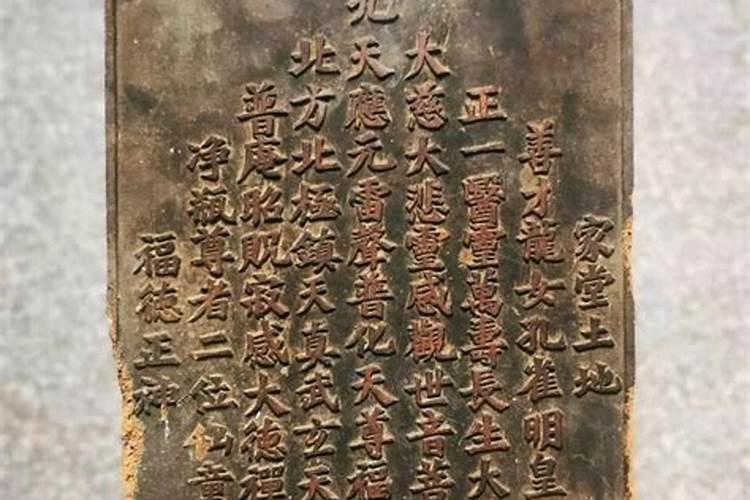 家堂土地
善才龍女孔雀明皇
正一醫靈萬壽長生大
大慈大悲靈感觀世音菩
九天應元雷聲普化天尊福
北方北極鎮天真武玄天
普庵昭貺寂感大德禪
净瓶尊者二位仙童
福德正神